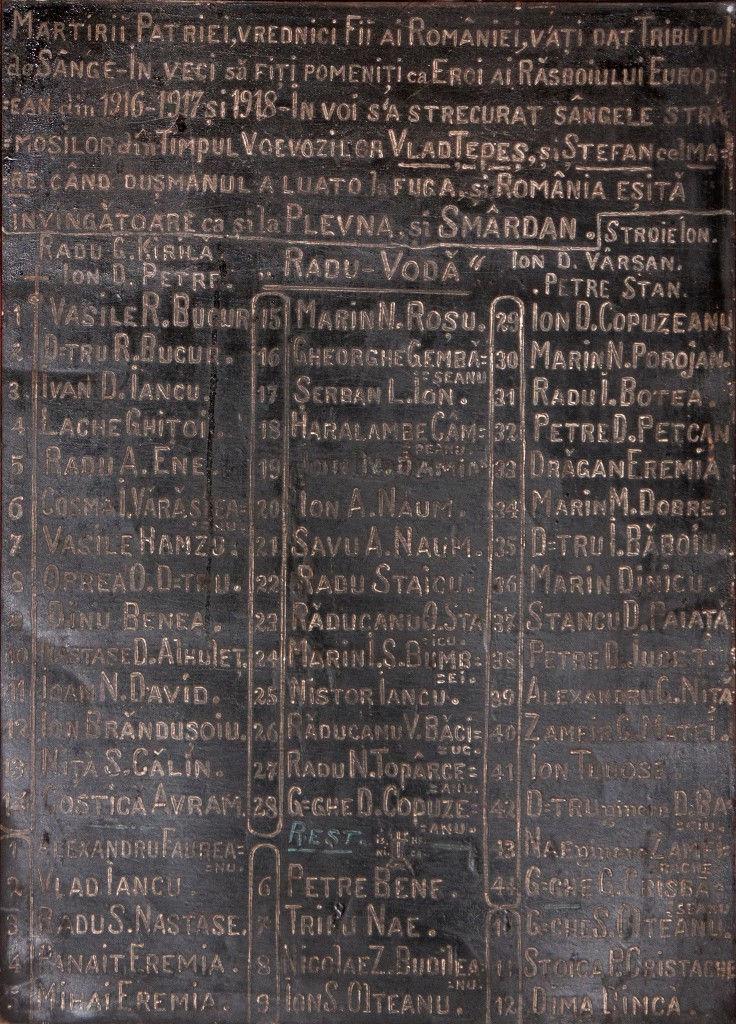 MARTIRII PATRIEI, VREDNICI FII AI ROMÂNIEI, VĂȚI DAT TRIBUTUL
de SÂNGE-ÎN VECI să FIȚI POMENIȚI ca EROI AI RĂSBOIULUI EUROP=
=EAN din 1916-1917 și 1918-ÎN VOI S'A STRECURAT SÂNGELE STRĂ
=MOȘILOR din TIMPUL VOEVOZILOR VLAD ȚEPEȘ, și ȘTEFAN cel MA=
RE CÂND DUȘMANUL A LUATO la FUGA, și ROMÂNIA EȘITĂ
INVINGĂTOARE ca și la PLEVNA, și SMÂRDAN.
STROIE ION.
RADU G. KIRILĂ.
ION D. PETRE.
„RADU-VODĂ“
ION D. VÂRȘAN.
PETRE STAN.
1 VASILE R. BUCUR
2 D=TRU R. BUCUR.
3 IVAN D. IANCU.
4 LACHE GHIȚOI
5 RADU A. ENE
6 COSMA I. VĂRĂȘTEA=
=NU.
7 VASILE HAMZU.
8 OPREA O. D=TRU.
9 DINU BENEA.
10 NASTASE D. AIHULET.
11 IOAN N. DAVID.
12 ION BRÂNDUȘOIU.
13 NIȚĂ S. CĂLIN.
14 COSTICA AVRAM.
15 MARIN N. ROȘU.
16 GHEORGHE GEMBĂ=
=SEANU
17 ȘERBAN L. ION.
18 HARALAMBE CÂM=
PEANU
19
20 ION A. NAUM.
21 SAVU A. NAUM.
22 RADU STAICU.
23 RĂDUCANU O. STA
ICU.
24 MARIN I. S. BUMB=
=EI.
25 NISTOR IANCU.
26 RĂDUCANU V. BĂCI=
=UC.
27 RADU N. TOPÂRCE=
=ANU.
28 G=GHE D. COPUZE=
=ANU.
29 ION D. COPUZEANU
30 MARIN N. POROJAN.
31 RADU I. BOTEA.
32 PETRE D. PETCAN
33 DRĂGAN EREMIA
34 MARIN M. DOBRE.
35 D=TRU I. BĂBOIU.
36 MARIN DINICU.
37 STANCU D. PAIAȚĂ
38 PETRE D. JUDET.
39 ALEXANDRU G. NIȚĂ
40 ZAMFIR G. MATEI.
41 ION TUDOSE.
42 D=TRU ginere D. BA
43 NAE ginere ZAMFI
RACHE
44 G=GHE G. CRISBĂ=
SEANU
REST.
1 ALEXANDRU FAUREA=
=NU.
2 VLAD IANCU
3 RADU S. NASTASE.
4 PANAIT EREMIA.
5 MIHAI EREMIA.
6 PETRE BENE.
7 TRIFU NAE.
8 NICOLAE Z. BUDILEA=
=NU.
9 ION S. OLTEANU.
10 G=GHE S. OLTEANU.
11 STOICA P. CRISTACHE
12 DIMA LINCĂ.